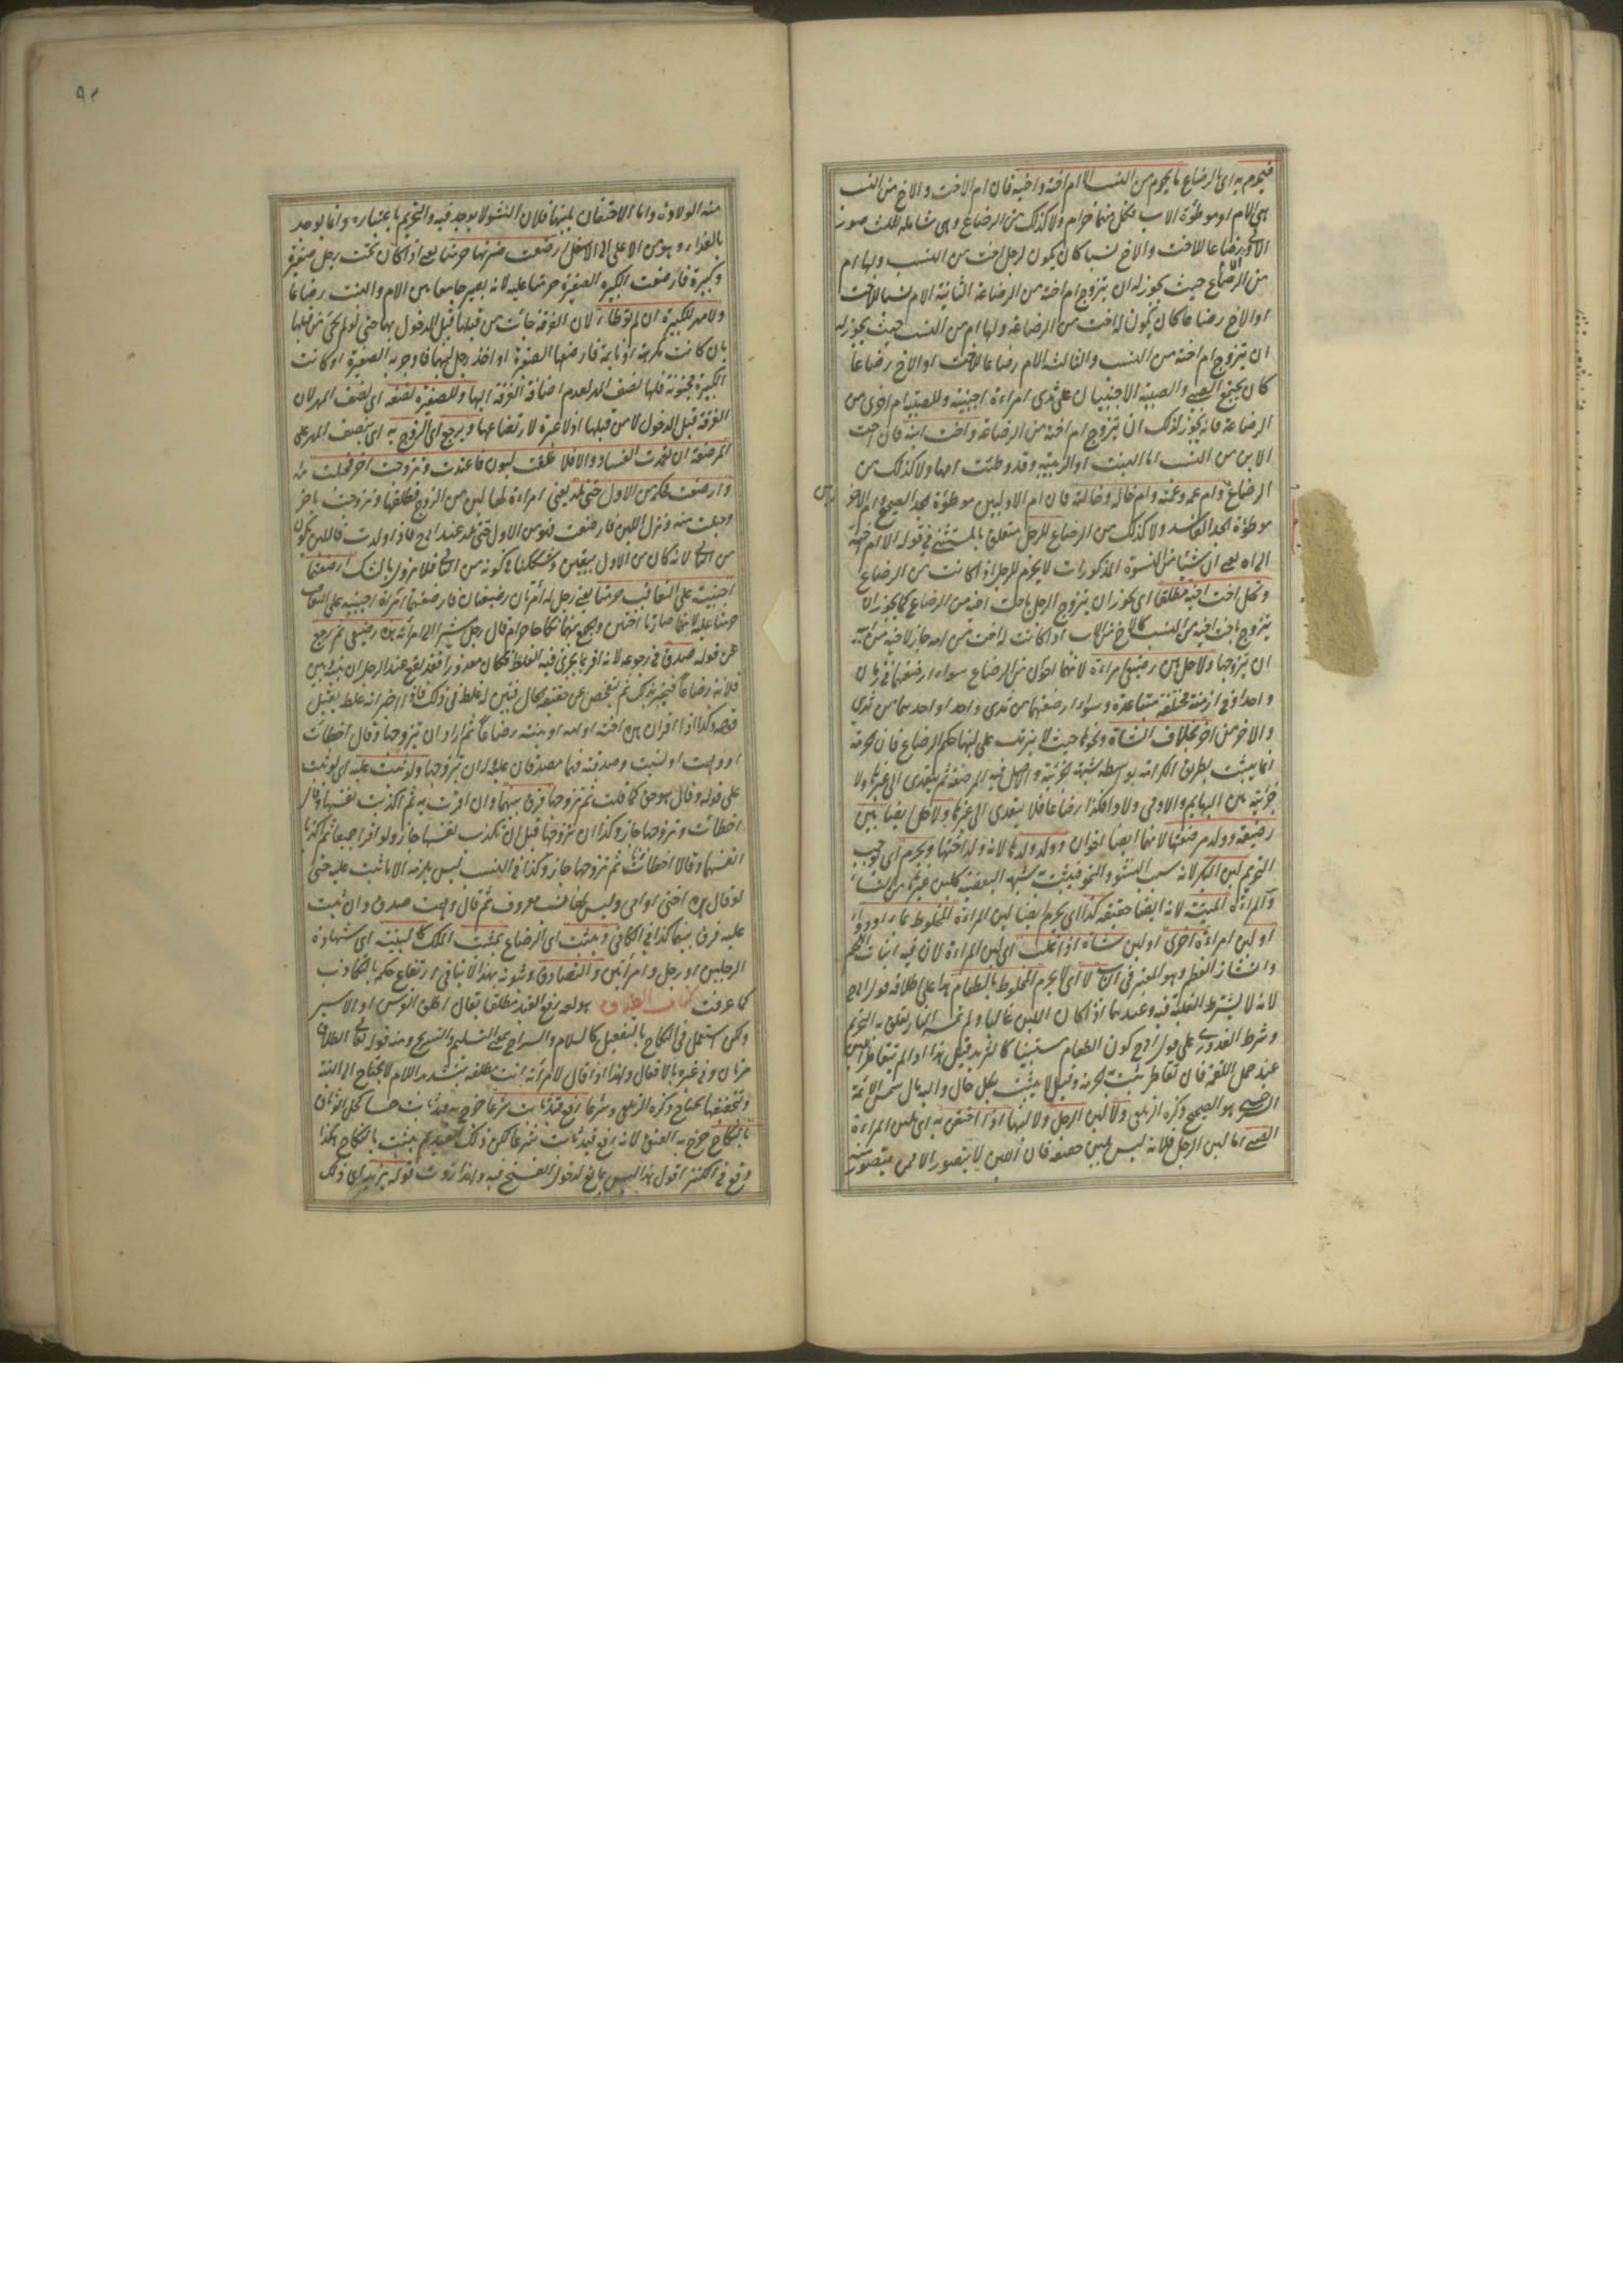 فيحرم به اى بالرضاع ما يحرم من النسب الا ام اخته واخيه فان ام الاخت والاخ من النسب
هى الام او موطؤة الاب وكل منهما حرام ولا كذلك من الرضاع وهى شاملة لثلث صور
الاولى الام رضاعا للاخت والاخ نسبا كان يكون لرجل اخت من النسب ولها ام
من الرضاع حيث يجوز له ان يتزوج ام اخته من الرضاعة الثانية الام نسبا للاخت
او الاخ رضاعا كان يكون له اخت من الرضاعة ولها ام من النسب حيث يجوز له
ان يتزوج ام اخته من النسب والثالثة الام رضاعا للاخت او الاخ رضاعا
كان يجتمع الصبى والصبية الاجنبيان على ثدى امراءة اجنبية وللصبية ام اخرى من
الرضاعة فانه يجوز لذلك ان يتزوج ام اخته من الرضاعة واخت ابنه فان اخت
الابن من النسب اما البنت او الربيبة وقد وطئت امها ولا كذلك من
الرضاع وام عمه وعمته وام خاله وخالته فان ام الاوليين موطؤة الجد الصحيح وام الاخر
موطؤة الجد الفاسد ولا كذلك من الرضاع للرجل متعلق بالمستثنى فى قوله الا ام اخته
الى اه يعنى ان شيئا من النسوة المذكورات لا يحرم للرجل اذا كانت من الرضاع
وتحل اخت اخيه مطلقا اى يجوز ان يتزوج الرجل باخت اخيه من الرضاع كما يجوز ان
يتزوج باخت اخيه من النسب كالاخ من الاب اذا كانت له اخت من امه جاز لاخيه من ابيه
ان يتزوجها ولا حل بين رضيعى امراءة لانهما اخوان من الرضاع سواء ارضعتهما فى زمان
واحد او فى ازمنة مختلفة متباعدة وسواء ارضعتهما من ثدى واحد او احدهما من ثدى
والاخر من اخر بخلاف الشاة ونحوها حيث لا يترتب على لبنها حكم الرضاع فان الحرمة
انما يثبت بطريق الكرامة بواسطة شبهة الجزئية والاصل فيه المرضعة ثم يتعدى الى غيرها ولا
جزئية بين البهايم والادمى ولادا فكذا رضاعا فلا يتعدى الى غيرها ولا حل ايضا بين
رضيعة وولد مرضعتها لانهما ايضا اخوان وولد ولدها لانه ولد اختها ويحرم اى يوجب
التحريم لبن البكر لانه سبب النشو والنمو فيثبت شبهة البعضية كلبن غيرها من النساء
والمراءة الميتة لانه ايضا حقيقة كذا اى يحرم ايضا لبن المراءة المخلوط بماء او دواء
او لبن امراءة اخرى او لبن شاة اذا غلب اى لبن المراءة لان فيه انبات اللحم
وانشاز العظم وهو المعتبر فى الباب لا اى لا يحرم المخلوط بالطعام هذا على اطلاقه قول ابى ح
لانه لا يشترط الغلبة فيه وعندهما اذا كان اللبن غالبا ولم تمسه النار يتعلق به التحريم
وشرط القدورى على قول ابى ح كون الطعام مستبينا كالثريد قيل هذا اذا لم يتقاطر اللبن
عند حمل اللقمة فان تقاطر يثبت الحرمة وقيل لا يثبت بكل حال واليه مال شمس الائمة
السرخسى هو الصحيح ذكره الزيلعى ولا لبن الرجل ولا لبنها اذا احتقن به اى بلبن المراءة
الصبى اما لبن الرجل فلانه ليس بلبن حقيقة فان اللبن لا يتصور الا ممن يتصور منه
منه الولادة واما الاحتقان بلبنها فلان النشو لا يوجد فيه والتحريم باعتباره وانما يوجد
بالغذاء وهو من الاعلى الى الاسفل ارضعت ضرتها حرمتا يعنى اذا كان تحت رجل صغيرة
وكبيرة فارضعت الكبيرة الصغيرة حرمتا عليه لانه يصير جامعا بين الام والبنت رضاعا
ولا مهر للكبيرة ان لم توطاء لان الفرقة جائت من قبلها قبل الدخول بها حتى لو لم يجئ من قبلها
بان كانت مكرهة او نايمة فارضعها الصغيرة او اخذ رجل لبنها فاوجر به الصغيرة او كانت
الكبيرة مجنونة فلها نصف المهر لعدم اضافة الفرقة اليها وللصغيرة نصفه اى نصف المهر لان
الفرقة قبل الدخول لا من قبلها اذ لا عبرة لارتضاعها ويرجع اى الزوج به اى بنصف المهر على
المرضعة ان تعمدت الفساد والا فلا طلقت لبون فاعتدت وتزوجت اخر فحبلت منه
وارضعت فحكمه من الاول حتى تلد يعنى امراءة لها لبن من الزوج فطلقها وتزوجت باخر
وحبلت منه ونزل اللبن فارضعت فهو من الاول حتى تلد عند ابى ح فاذا ولدت فاللبن يكون
من الثانى لانه كان من الاول بيقين وشككنا فى كونه من الثانى فلا يزول بالشك ارضعتهما
اجنبية على التعاقب حرمتا يعنى رجل له امرأتان رضيعتان فارضعتهما امراة اجنبية على التعاقب
حرمتا عليه لانهما صارتا اختين والجمع بينهما نكاحا حرام قال رجل مشيرا الى امرأته هذه رضيعتى ثم رجع
عن قوله صدق فى رجوعه لانه اقر بما يجرى فيه الغلط فكان معذورا فقد يقع عند الرجل ان بينه وبين
فلانة رضاعا فيخبر بذلك ثم يتفحص عن حقيقة الحال فيتبين له غلطه فى ذلك فاذا اخبر انه غلط يقبل
قوله وكذا اذا اقر ان هذه اخته او امه او بنته رضاعا ثم اراد ان يتزوجها وقال اخطأت
او وهمت او نسيت وصدقته فهما مصدقان عليه وله ان يتزوجها ولو ثبت عليه اى لو ثبت
على قوله وقال هو حق كما قلت ثم تزوجها فرق بينهما وان اقرت به ثم اكذبت نفسها وقالت
اخطأت وتزوجها جاز وكذا ان تزوجها قبل ان تكذب نفسها جاز ولو اقرا جميعا ثم اكذبا
انفسهما وقالا اخطأنا ثم تزوجها جاز وكذا فى النسب ليس يلزمه الا ما ثبت عليه حتى
لو قال هذه اختى او امى وليس لها نسب معروف ثم قال وهمت صدق وان ثبت
عليه فرق بينهما كذا فى الكافى ويثبت اى الرضاع بما يثبت الملك كالبينة اى شهادة
الرجلين او رجل وامرأتين والتصادق وثبوته بهذا لا ينافى ارتفاع حكمه بالتكاذب
كما عرفت كتاب الطلاق هو لغة رفع القيد مطلقا يقال اطلق الفرس او الاسير
ولكن استعمل فى النكاح بالتفعيل كالسلام والسراح بمعنى التسليم والتسريح ومنه قوله تعالى الطلاق
مرتان وفى غيره بالافعال ولهذا اذا قال لامرأته انت مطلقة بتشديد اللام لا يحتاج الى النية
وبتخفيفها يحتاج ذكره الزيلعى وشرعا رفع قيد ثابت شرعا خرج به قيد ثابت حسا كحل الوثاق
بالنكاح خرج به العتق لانه رفع قيد ثابت شرعا لكن ذلك القيد لم يثبت بالنكاح هكذا
وقع فى الكنز اقول هذا ليس بمانع لدخول الفسخ فيه ولهذا زدت قوله يزيد اى ذلك